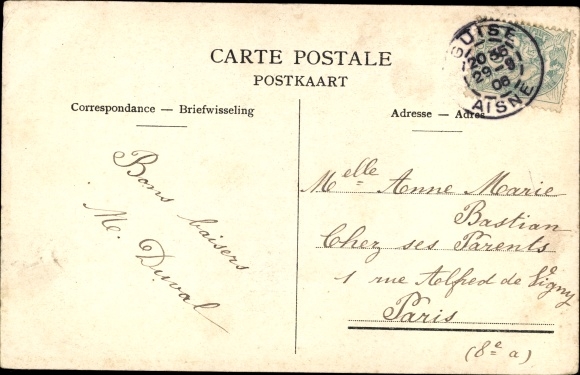 CARTE POSTALE
POSTKAART
Correspondance — Briefwisseling
Adresse — Adres
GUISE
20 35
29 - 9
06
AISNE
Bons baisers
M. Duval
Melle Anne Marie
Bastian
Chez ses Parents
1 rue Alfred de Vigny
Paris
(8e a)